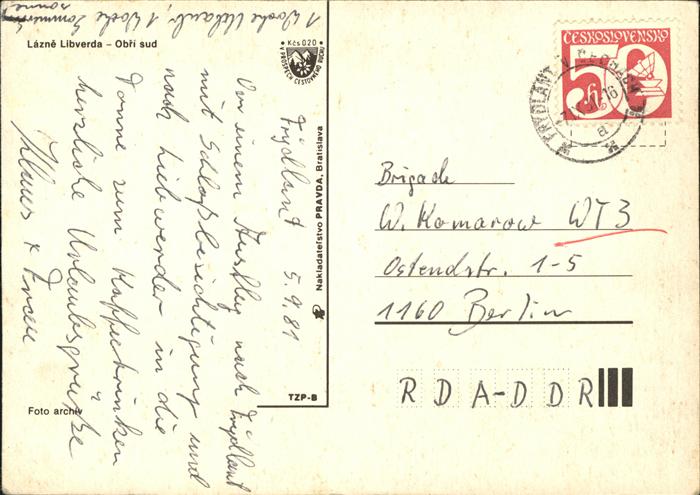 1 Woche Urlaub, 1 Woche Sommer
sonne
Lázně Libverda – Obří sud
Kčs 0,20
V PROSPĚCH CESTOVNÍHO RUCHU
Frýdlant 5.9.81
Von einem Ausflug nach Frýdlant
mit Schloßbesichtigung und
nach Liebwerder in die
Tonne zum Kaffeetrinken
herzliche Urlaubsgrüße
Klaus +
Foto archiv
Nakladateľstvo PRAVDA, Bratislava
TZP-B
ČESKOSLOVENSKO
50 h
FRÝDLANT V ČECHÁCH
Brigade
W. Komarow WT3
Ostendstr. 1-5
1160 Berlin
RDA-DDR